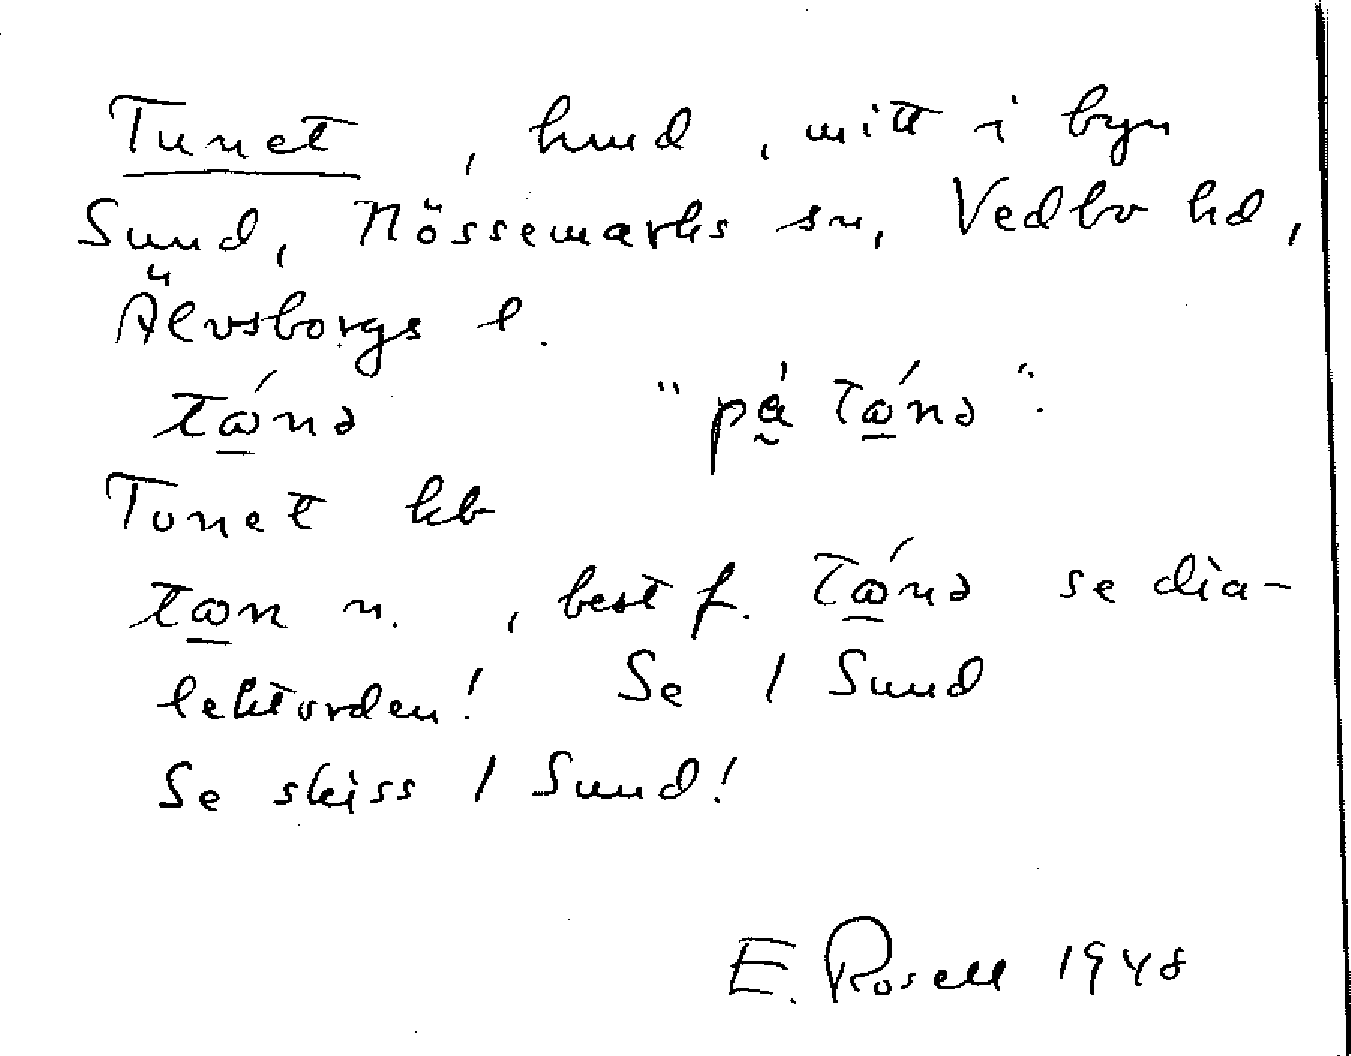 Tunet, hmd, mitt i byn
Sund, Nössemarks sn, Vedbo hd,
Älvsborgs l.
tώ̲nə "på̰ tώ̲nə".
Tunet kb
tω̲n n., best f. tώ̲nə se dia-
lektorden! Se 1 Sund
Se skiss 1 Sund!
E. Rosell 1948